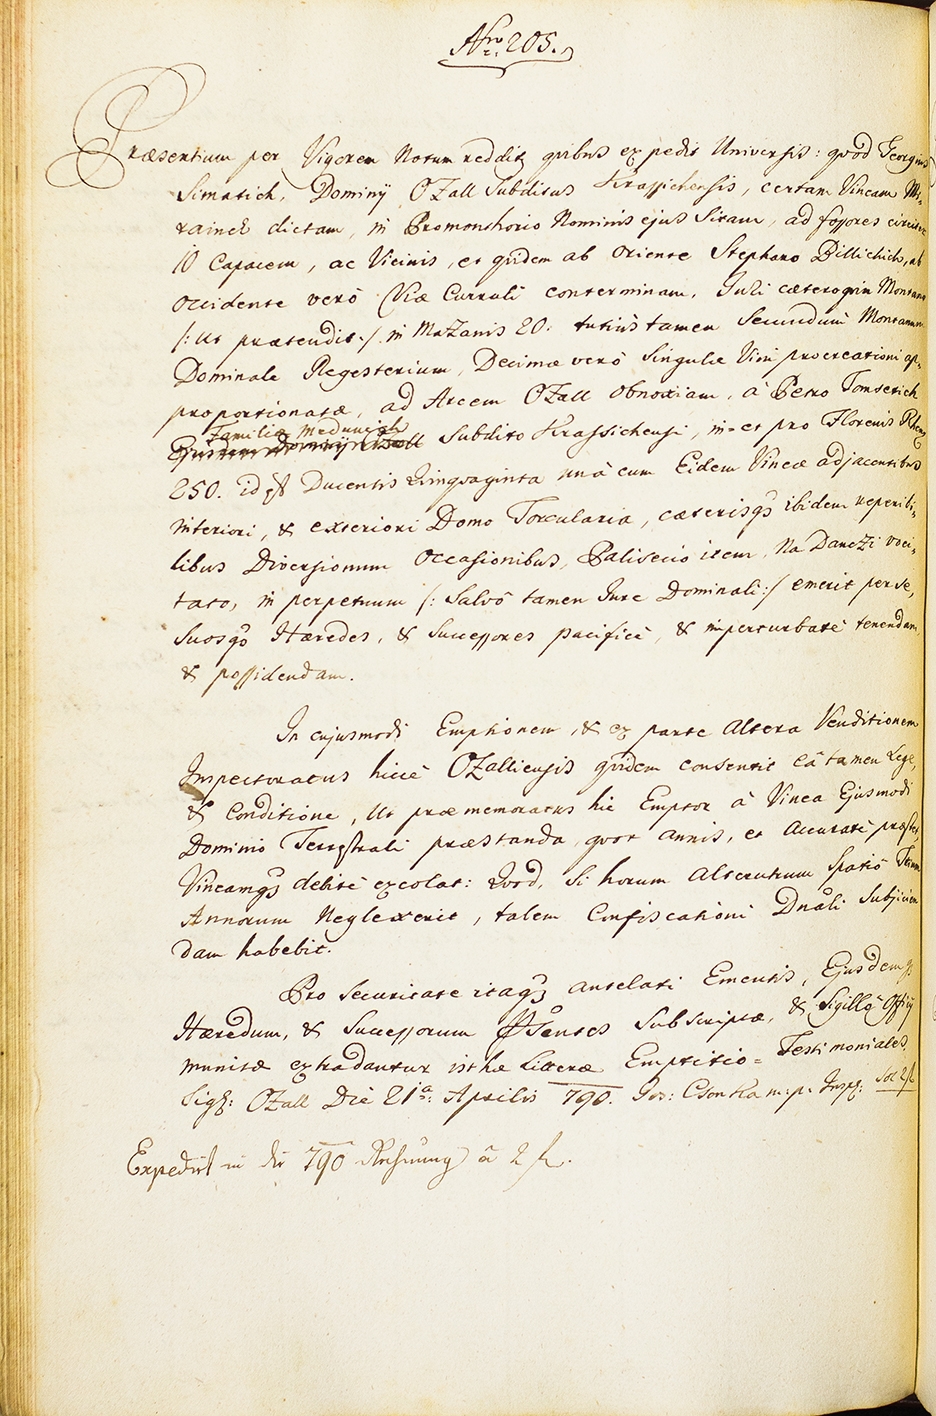 Nro 205.
Præsentium per Vigorem Notum redditr quibus expedit Universis: quod Georgius
Simatich, Dominÿ OZall Subditus Krassichensis, certam Vineam Mi-
rainek dictam, in Promonthorio Nominis ejus Sitam, ad fossores circiter
10 Capacem, ac Vicinis, et quidem ab Oriente Stephano Billichich, ab
Occidente verò Viæ Currali conterminam, Juri cæteroquin Montano
/: Ut prætendit :/ in MaZanis 20. tutiùs tamen Secundùm Montanum
Dominale Regesterium, Decimæ verò Singulæ Vini procreationi ap-
proportionatæ, ad Arcem OZall Obnoxiam, à Petro Tomsetich
Familiæ Medunich
Ejusdem Dominÿ OZall Subdito Krassichensi, in- et pro Florenis Rhens
250. id est Ducentis Quinquaginta unà cum Eidem Vineæ adjacentibus
interiori, & exteriori Domo Torcularia, cæterisqs ibidem reperibi-
libus Diversionum Occasionibus, Palisecio item, Na DanczZi voci-
tato, in perpetuum /: Salvô tamen Jure Dominali :/ emerit per se,
Suosqs Hæredes, & Successores pacificè, & imperturbatè tenendam,
& possidendam.
In cujusmodi Emptionem, & ex parte altera Venditionem
Inspectoratus hicce OZalliensis quidem consentit eâ tamen Lege,
& Conditione, Ut præmemoratus hic Emptor à Vinea Ejusmodi
Dominio Terrestrali præstanda, quot annis, et Accuratè præstet,
Vineamqs debitè excolat: Quod, Si horum Alterutrum Spatiô Trium
Annorum Neglexerit, talem Confiscationi Dnali Subjicien
dam habebit.
Pro Securitate itaqs antelati Ementis, Ejusdemqs
Hæredum, & Successorum Psentes Subscriptæ, & Sigillô Officÿ
munitæ extradantur isthæ Litteræ Emptitio- Testimoniales.
Sigs: OZall Die 21a Aprilis 790. Jos: CsonKa m:p. Insp: Sol 2 fl
Expedirt in die 790 Rechnung à 2 fl.